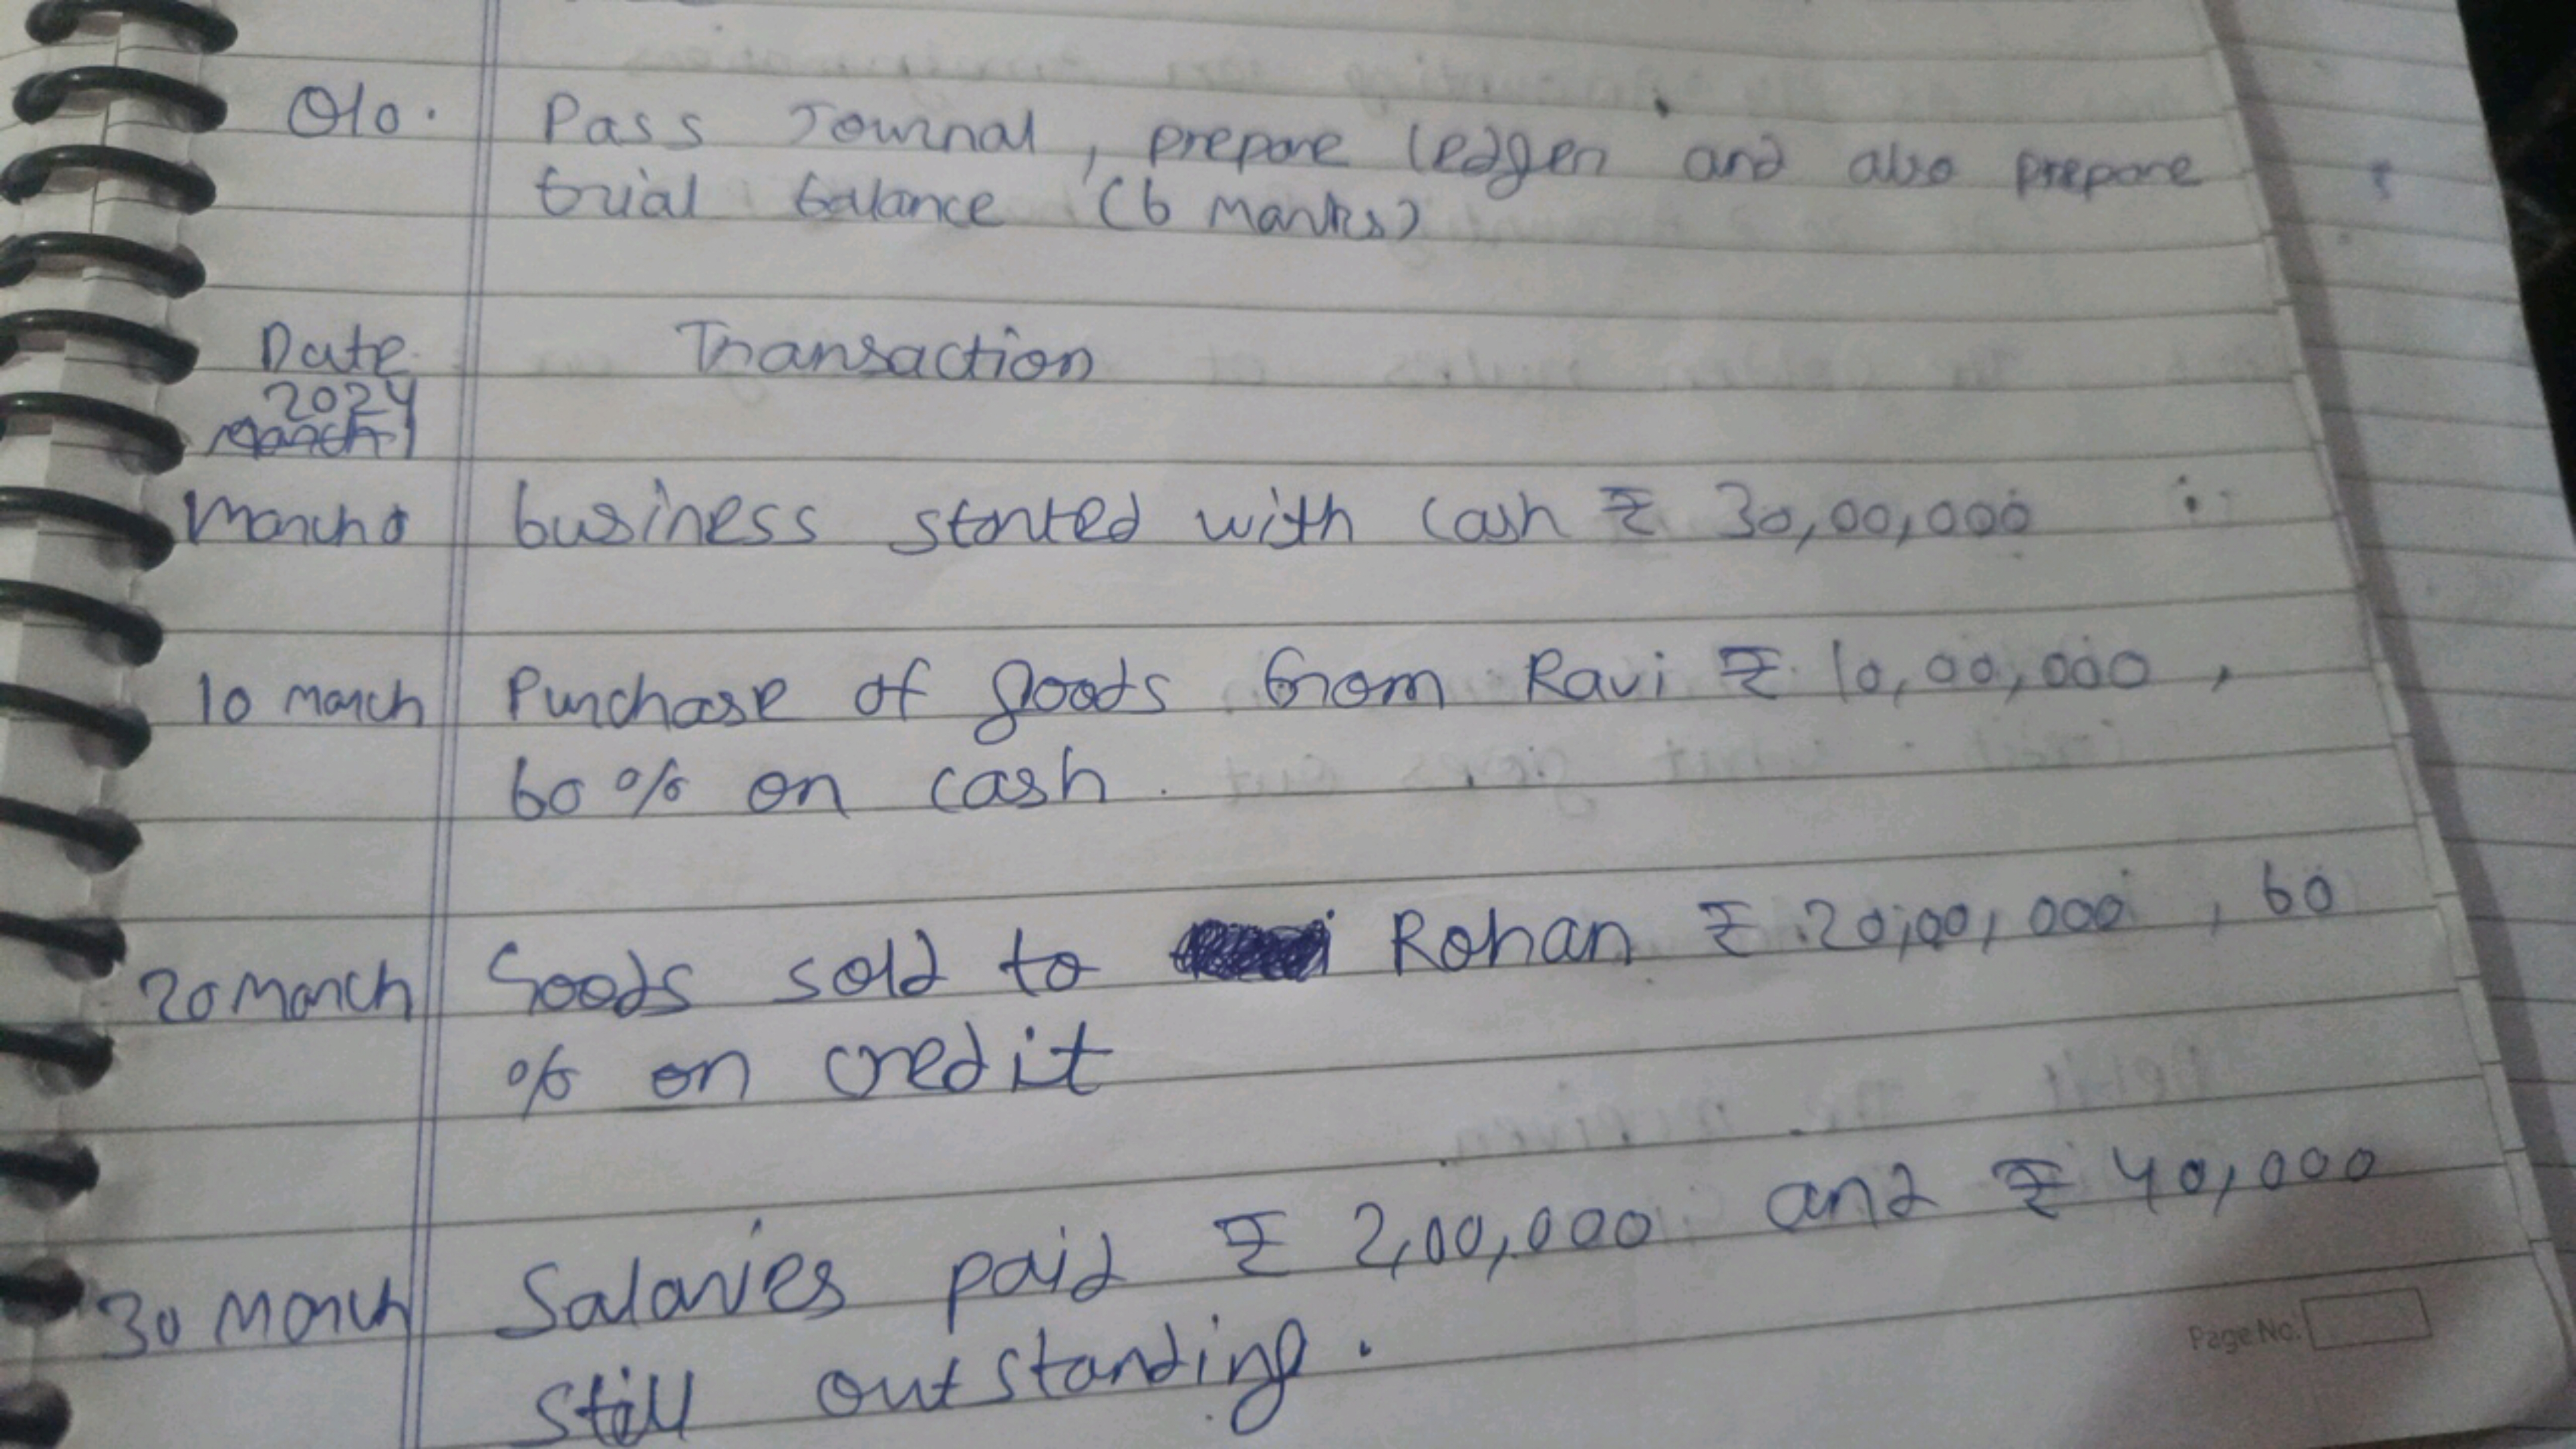 Q10. Pass Journal, prepare ledger and also prepare
trial balance (6 Marks)
Date Transaction
2024
March 1
March business started with cash ₹ 30,00,000
10 march Purchase of goods from Ravi ₹ 10,00,000,
60% on cash.
20 March Goods sold to Rohan ₹ 20,00,000, 60
% on credit
30 March Salaries paid ₹ 2,00,000 and ₹ 40,000
still outstanding.
Page No.